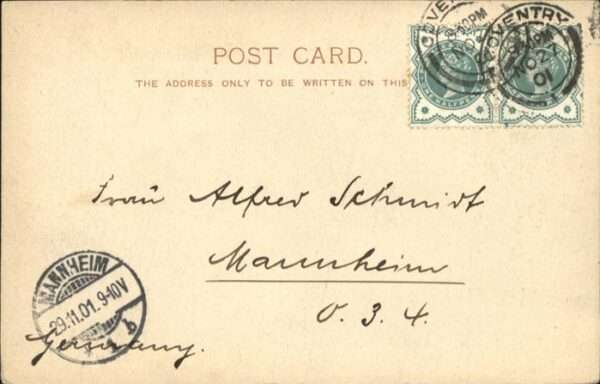 POST CARD.
THE ADDRESS ONLY TO BE WRITTEN ON THIS
COVENTRY
COVENTRY
NO 2
01
Frau Alfred Schmidt
Mannheim
O. 3. 4.
Germany.
MANNHEIM
29.11.01.9-10V